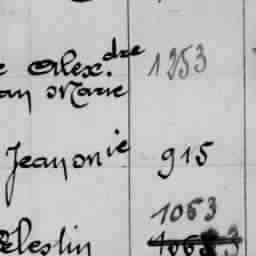 Alex.dre 1253
an Marie
Jean on ie 915
1063
élestin 1063